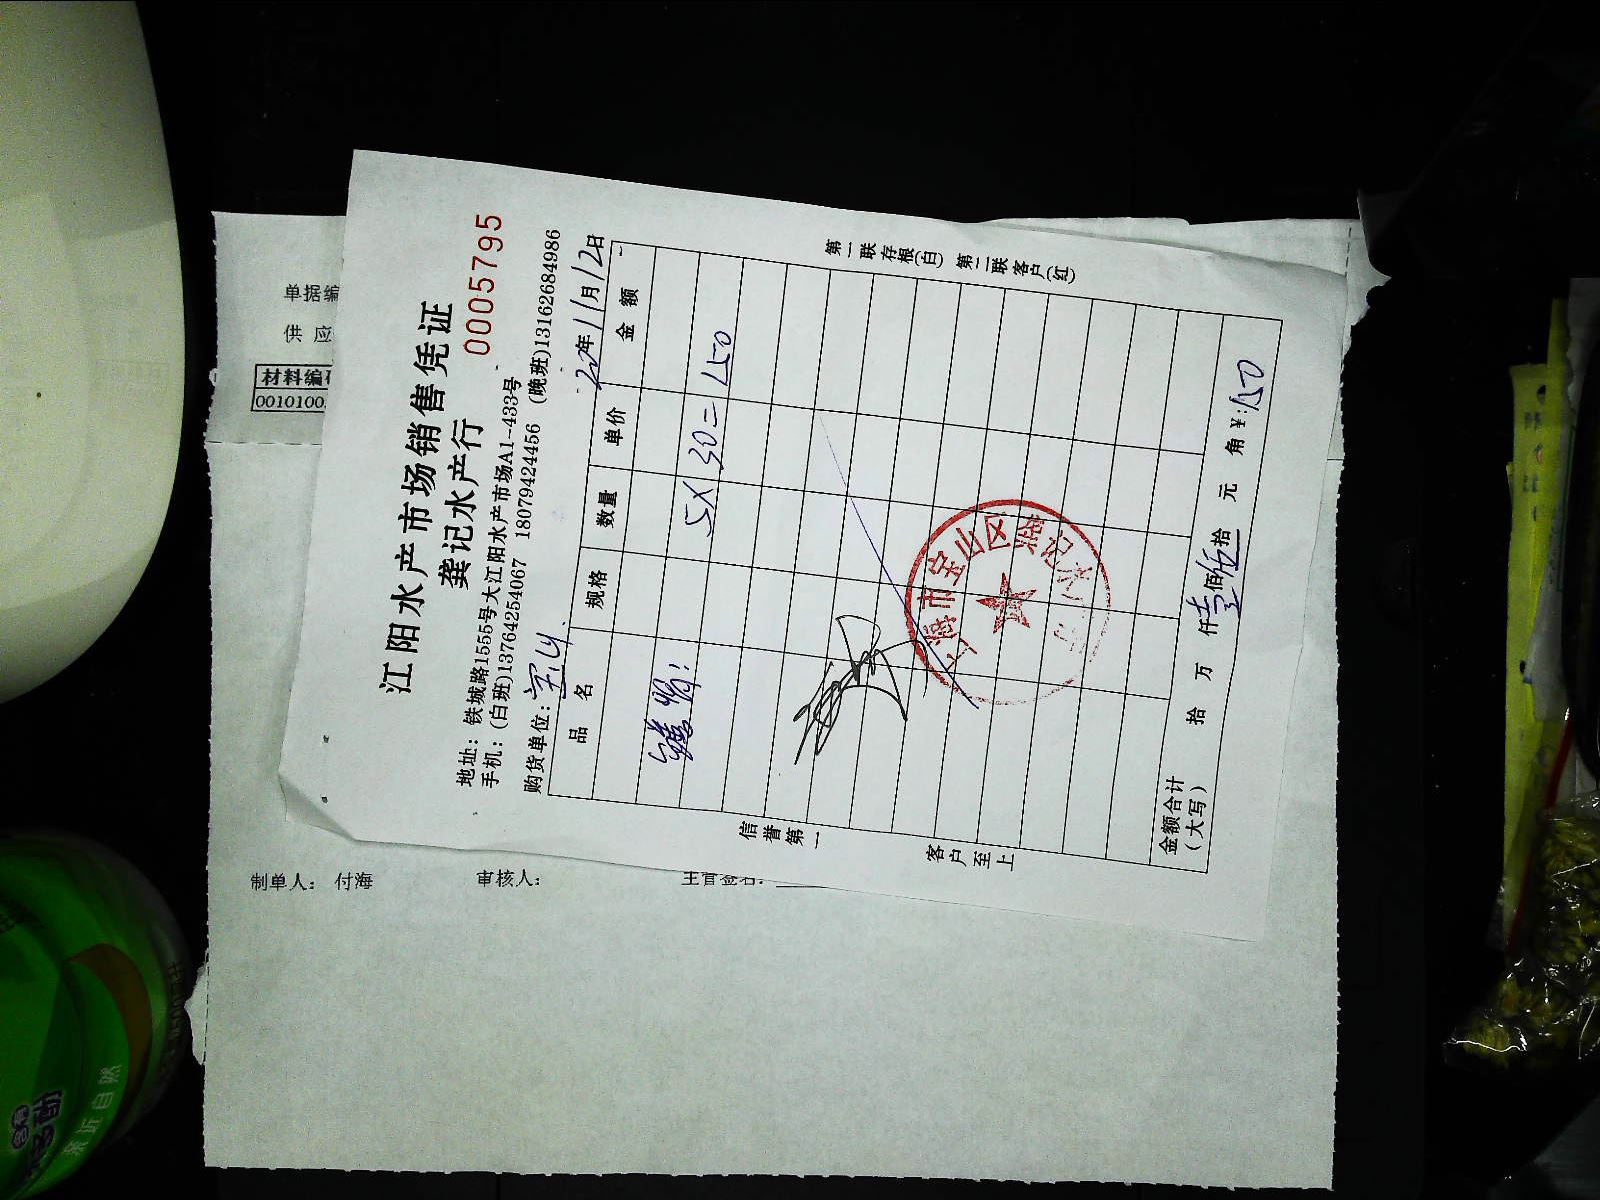 江阳水产市场销售凭证
龚记水产行
0005795
地址：铁城路1555号大江阳水产市场A1-433号
手机：(白班)13764254067 18079424456 (晚班)13162684986
购货单位：宝山 20年11月12日
品名 规格 数量 单价 金额
5X 30= 150
金额合计（大写） 拾 万 仟壹佰伍拾 元 角 ￥:150
信誉第一 客户至上
第一联存根(白) 第二联客户(红)
上海市宝山区
单据编
供 应
材料编
0010100
制单人： 付海
审核人：
亲近自然